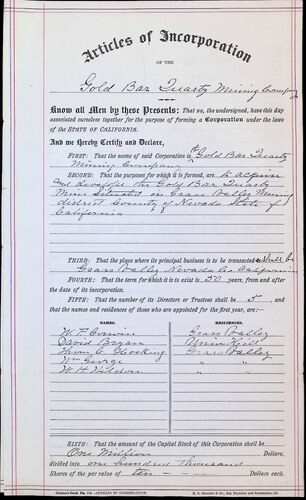 Articles of Incorporation
OF THE
Gold Bar Quartz Mining Company
Know all Men by these Presents: That we, the undersigned, have this day
associated ourselves together for the purpose of forming a Corporation under the laws
of the STATE OF CALIFORNIA.
And we hereby Certify and Declare,
FIRST: That the name of said Corporation is Gold Bar Quartz
Mining Company
SECOND: That the purposes for which it is formed, are to acquire
and develope the Gold Bar Quartz
Mine Situated in Grass Valley Mining
district County of Nevada State of
California
THIRD: That the place where its principal business is to be transacted shall be
Grass Valley, Nevada Co California
FOURTH: That the term for which it is to exist is 50 years, from and after
the date of its incorporation.
FIFTH: That the number of its Directors or Trustees shall be 5, and
that the names and residences of those who are appointed for the first year, are:-
NAMES. RESIDENCES.
Grass Valley
David Bryan Union Hill
Grass Valley
Wm George " "
" "
SIXTH: That the amount of the Capital Stock of this Corporation shall be
One Million Dollars,
divided into one hundred thousand
Shares of the par value of ten Dollars each.